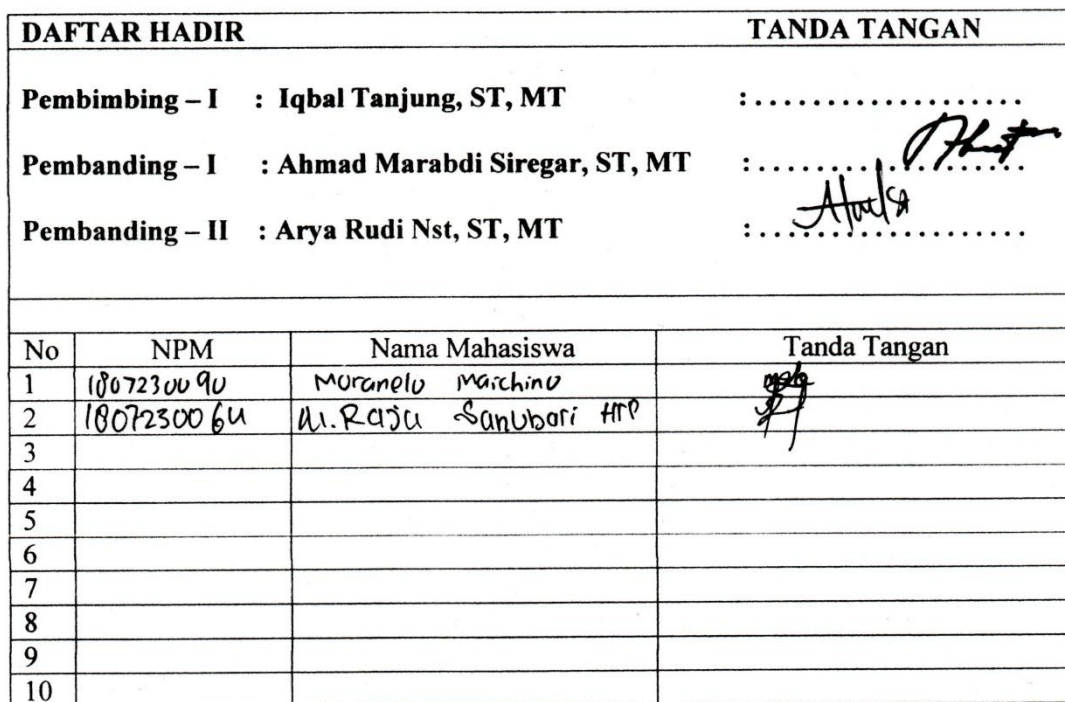 DAFTAR HADIR TANDA TANGAN
Pembimbing – I : Iqbal Tanjung, ST, MT :....................
Pembanding – I : Ahmad Marabdi Siregar, ST, MT :....................
Pembanding – II : Arya Rudi Nst, ST, MT :....................
No NPM Nama Mahasiswa Tanda Tangan
1 1807230090 Moranelo Marchino
2 1807230064 M. Raju Sanubari HTP
3
4
5
6
7
8
9
10